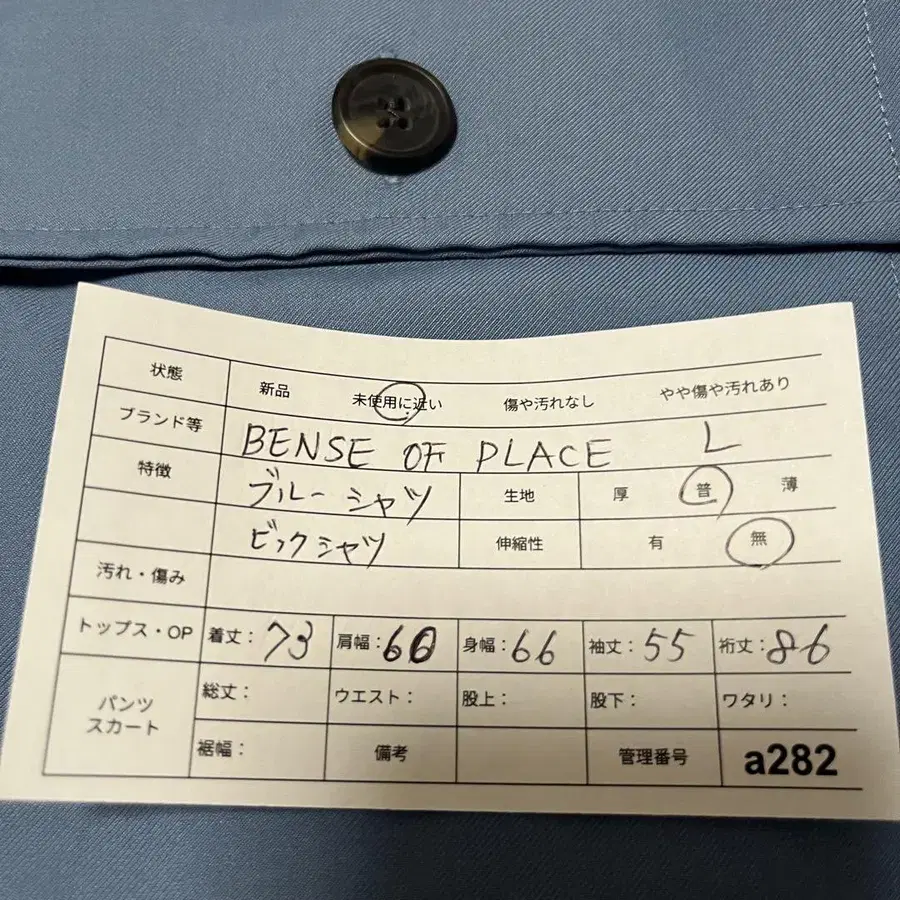 状態 新品 未使用に近い 傷や汚れなし やや傷や汚れあり
ブランド等 BENSE OF PLACE L
特徴 ブルーシャツ 生地 厚 普 薄
ビックシャツ 伸縮性 有 無
汚れ・傷み
トップス・OP 着丈：73 肩幅：60 身幅：66 袖丈：55 裄丈：86
パンツ スカート 総丈： ウエスト： 股上： 股下： ワタリ：
裾幅： 備考 管理番号 a282